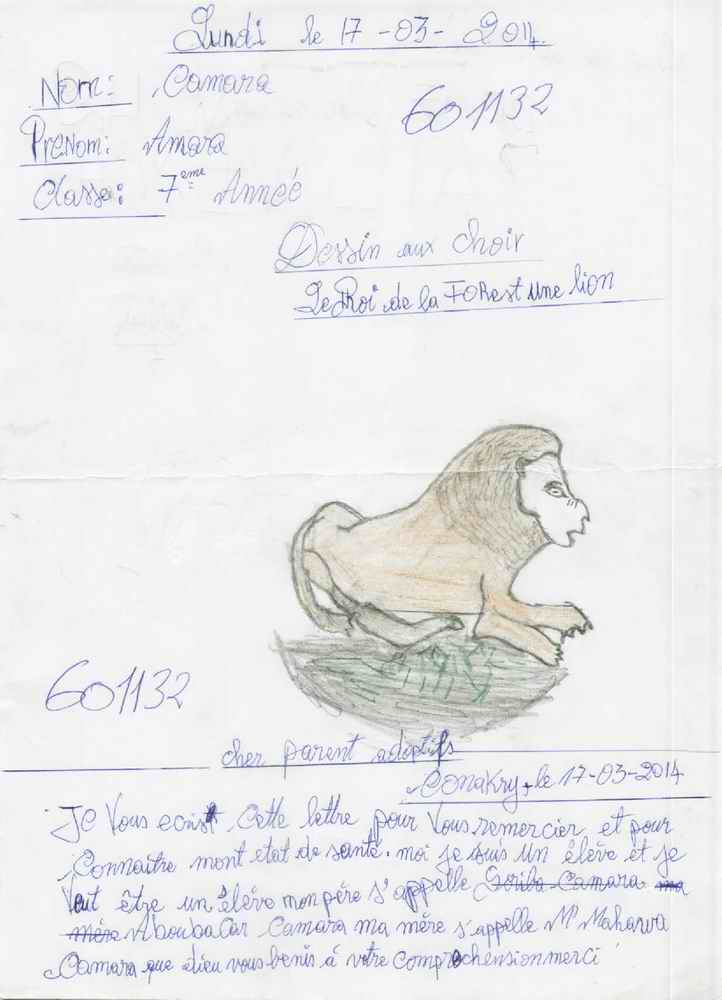 Lundi le 17-03-2014
Nom: Camara
601132
PreNom: Amara
Classe: 7eme Année
Dessin aux choir
Le Roi de la FORest une lion
601132
cher parent adoptifs
Conakry, le 17-03-2014
Je Vous ecrist cette lettre pour Vous remercier et pour
Connaître mont etat de santé. moi je suis un élève et je
Veut être un élève mon père s'appelle Soriba Camara ma
mère Aboubacar Camara ma mère s'appelle M' Mahawa
Camara que dieu vous benis à vôtre comprehension merci